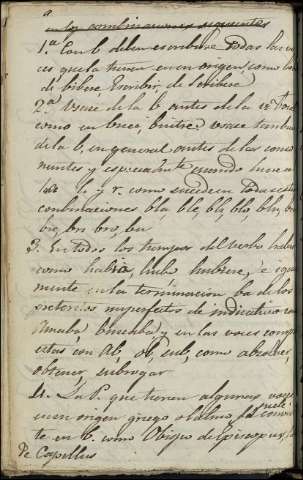 a
en las combinaciones siguientes
1.ª Con b deben escribirse todas las vo
ces que la tienen en su origen, como beber
de bibere Escribir, de Scribere
2.ª Úsase de la b antes de la u vocal
como en buei, buitre úsase tambien
de la b, en general antes de las conso
nantes y especialmente cuando hiere a
las l y r. como sucede en todas estas
combinaciones bla, ble, bli, blo, blu, bra
bre, bri bro, bru
3. En todos los tiempos del verbo haber
como habia, hubo hubiera, é igual
mente en la terminacion ba de los
preteritos imperfectos de indicativo
Amaba, brincaba y en las voces compu
estas con Ab, ob, sub, como absolver,
obtener, subrogar
4. La P. que tienen algunas voces
en su origen griego o latino se convier
te en b. como Obispo de Episcopus,
De Capillus